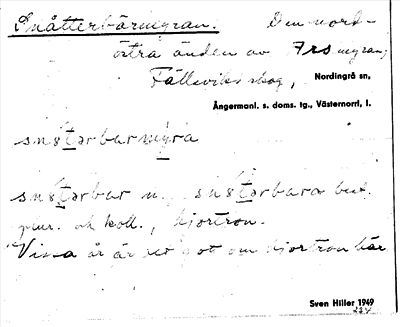 Snåtterbärmyran. Den nord-
östra änden av Ars myran,
Fälleviks skog, Nordingrå sn,
Ångermanl. s. doms. tg., Västernorrl. l.
snstərbarmyra
snstərbar n., snstərbara best.
plur. och koll., hjortron.
Vissa år är det gott om hjortron här
Sven Hiller 1949